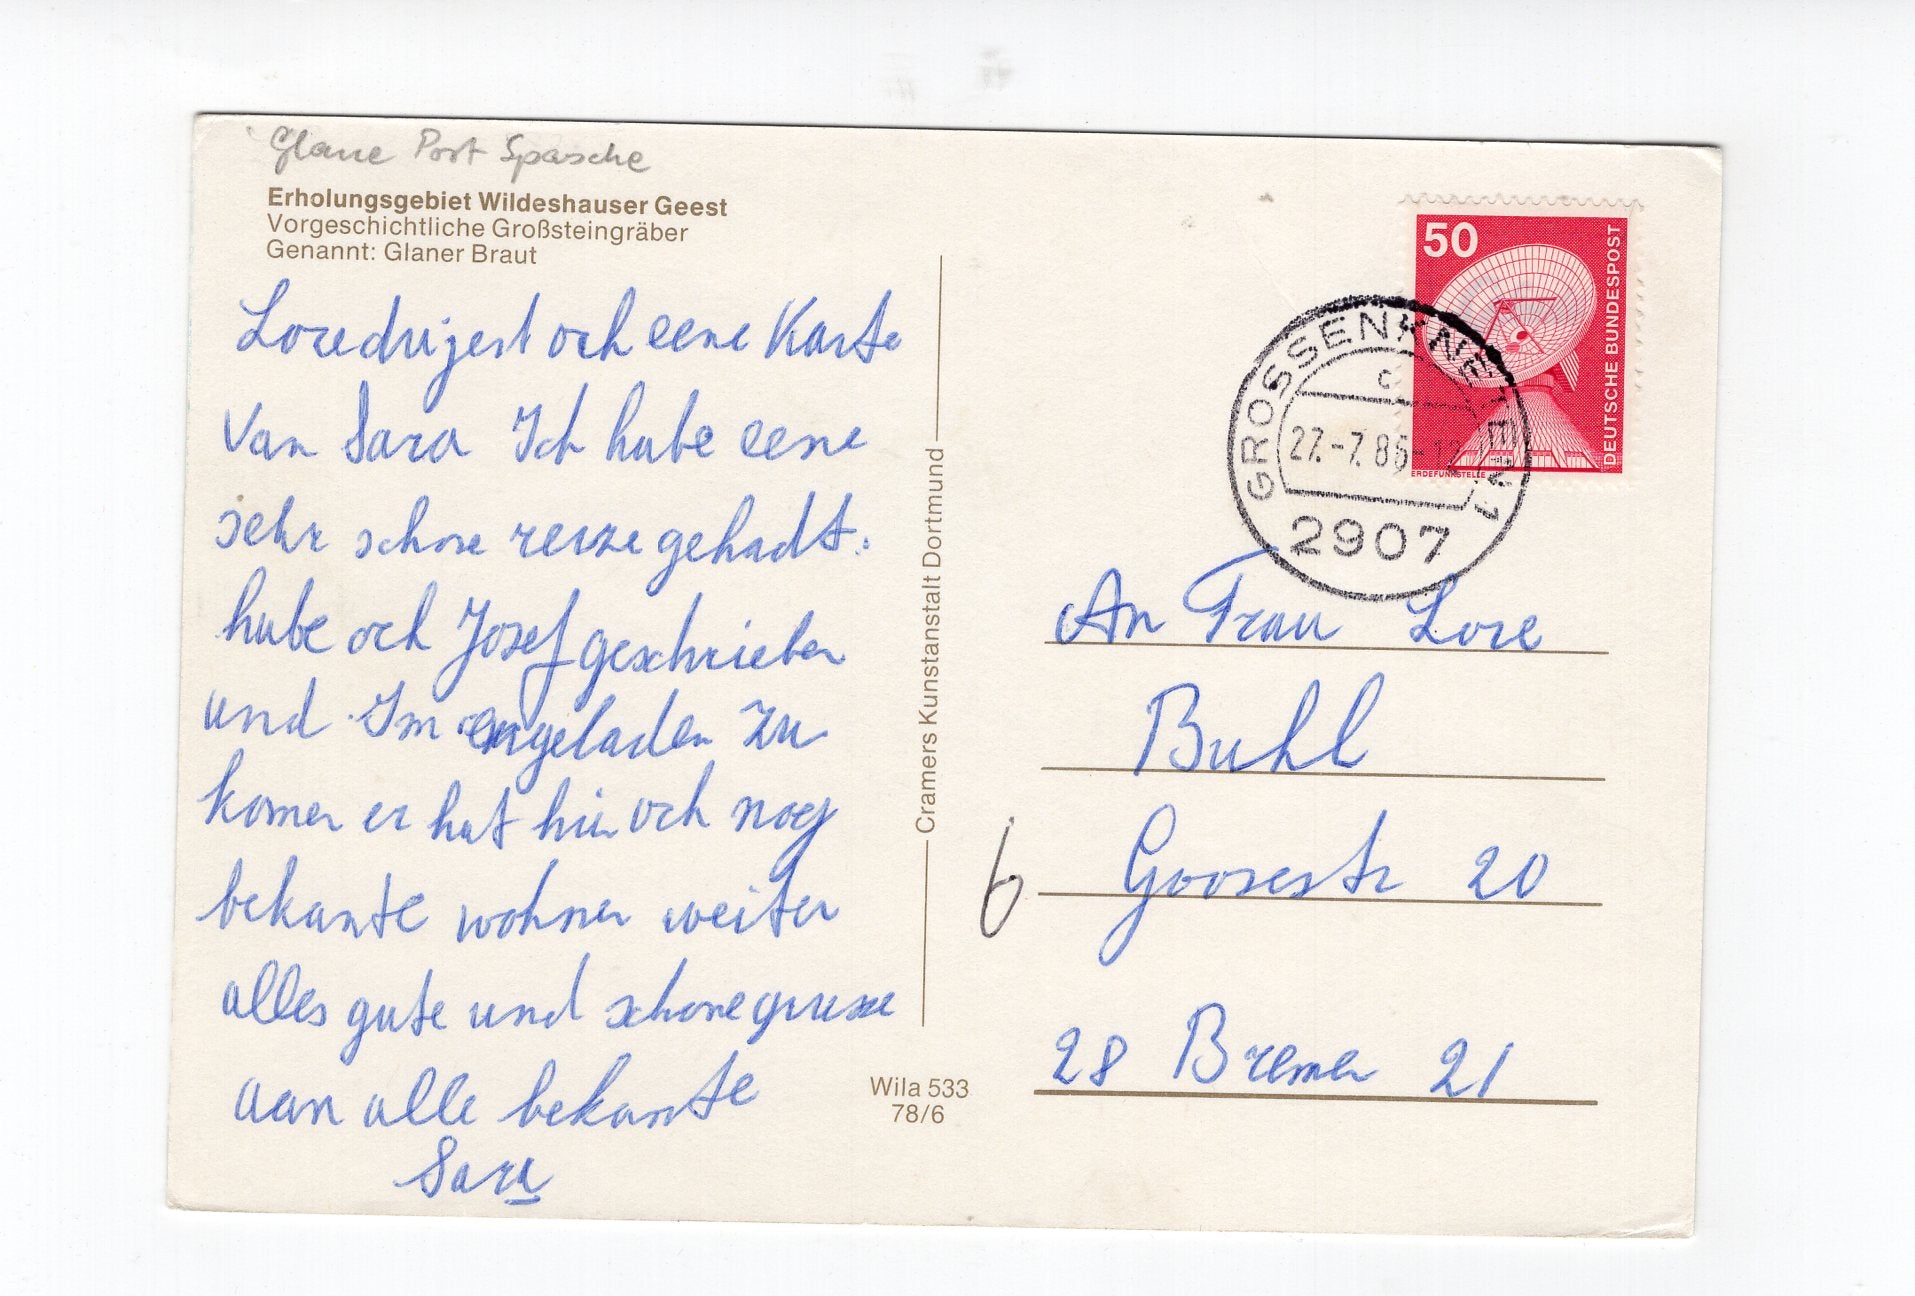 Glane Post Spasche
Erholungsgebiet Wildeshauser Geest
Vorgeschichtliche Großsteingräber
Genannt: Glaner Braut
Lore du jest och eene Karte
Van Sara Ich habe eene
sehr schone reize gehadt.
habe och Josef geschrieben
und Im engeladen zu
komen er hat hier och nog
bekante wohnen weiter
alles gute und schone grusse
aan alle bekante
Sara
Cramers Kunstanstalt Dortmund
Wila 533
78/6
50
DEUTSCHE BUNDESPOST
ERDEFUNKSTELLE
GROSSENKNETEN 1
c
27.-7.86-12
2907
An Frau Lore
Buhl
Goosestr 20
28 Bremen 21
6